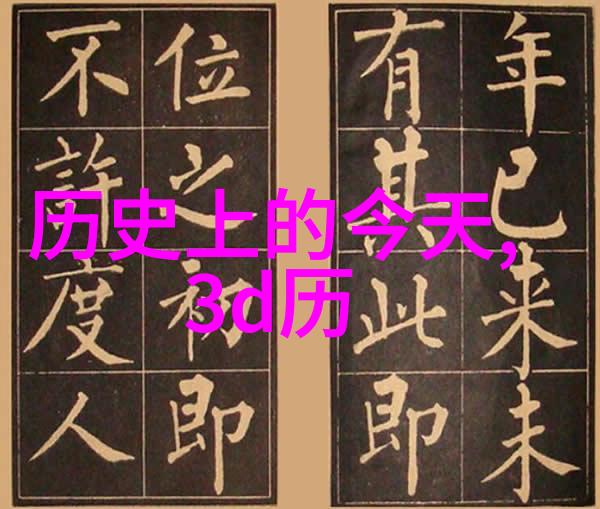 年已来未
有其此即
位之初即
不許度人
历史上的今天,
3d历